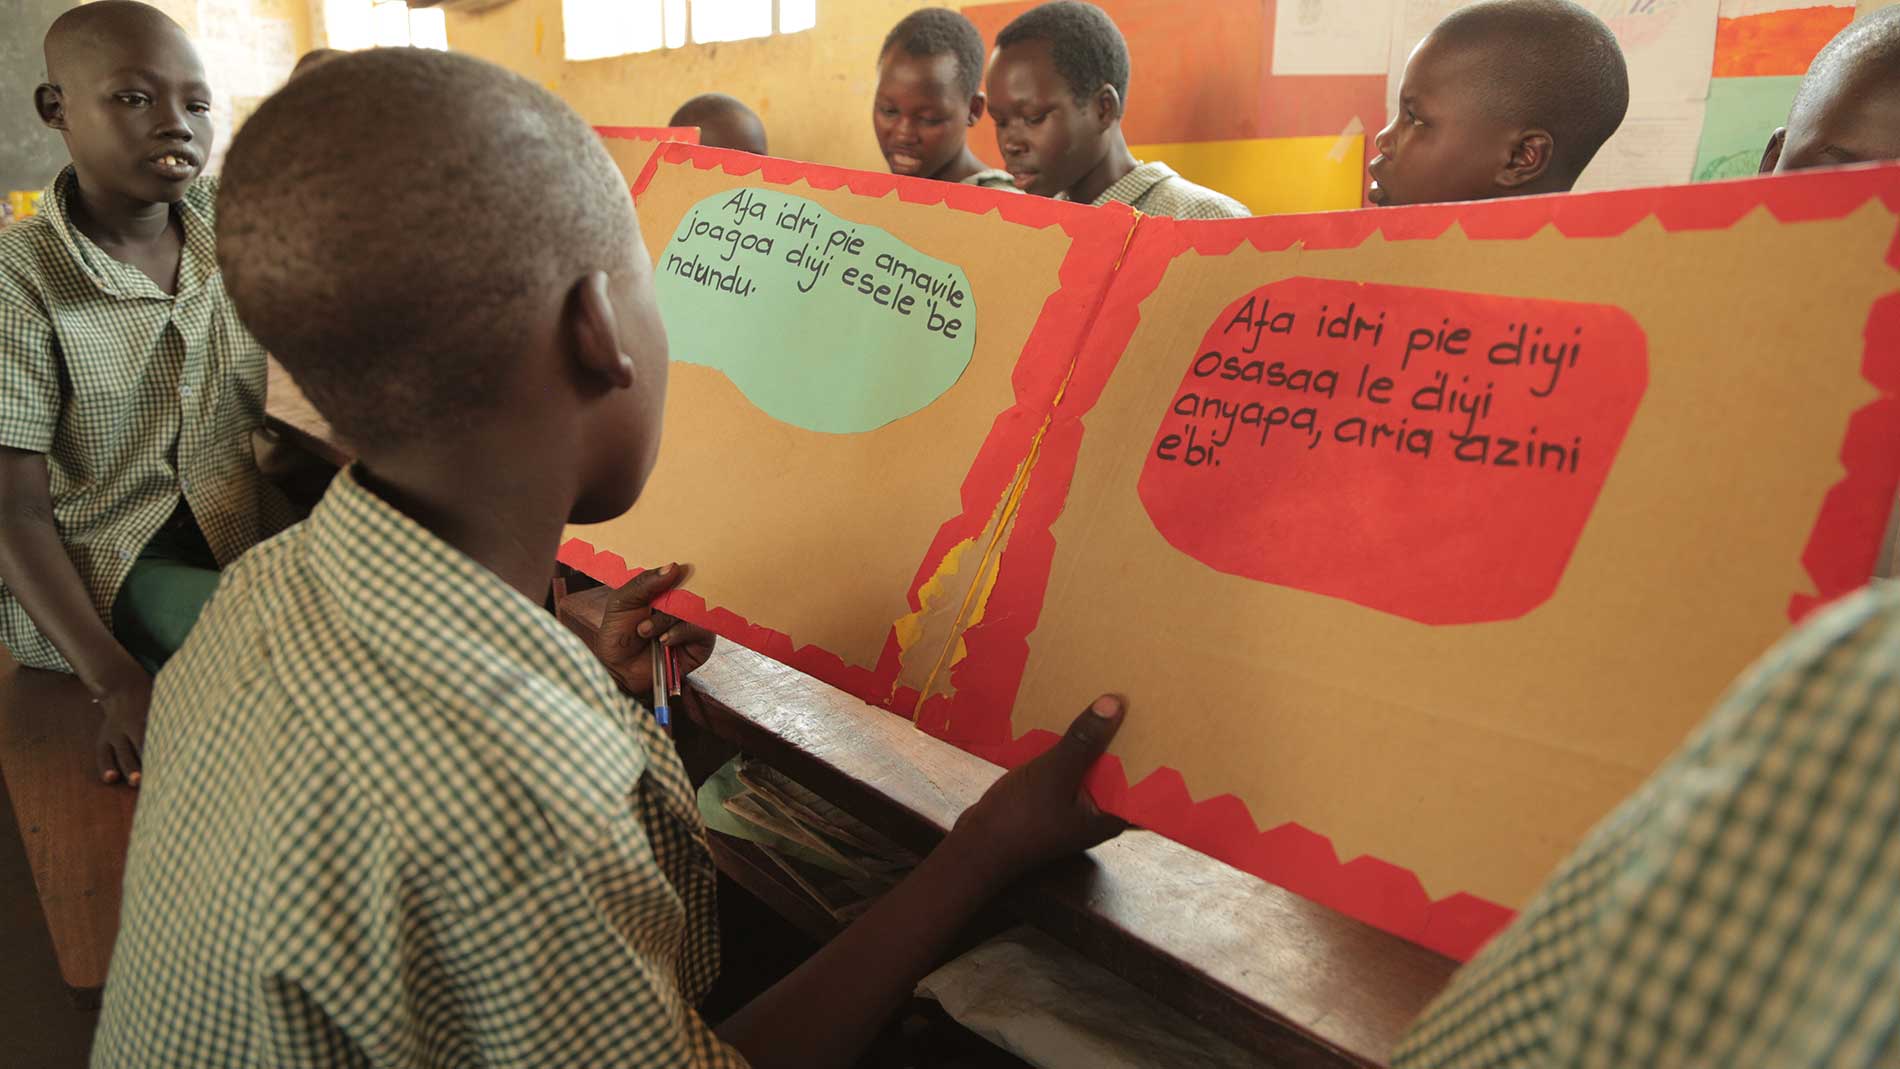 Afa idri pie amavile
joagoa diyi esele 'be
ndundu.
Afa idri pie 'diyi
osasaa le 'diyi
anyapa, aria azini
e'bi.